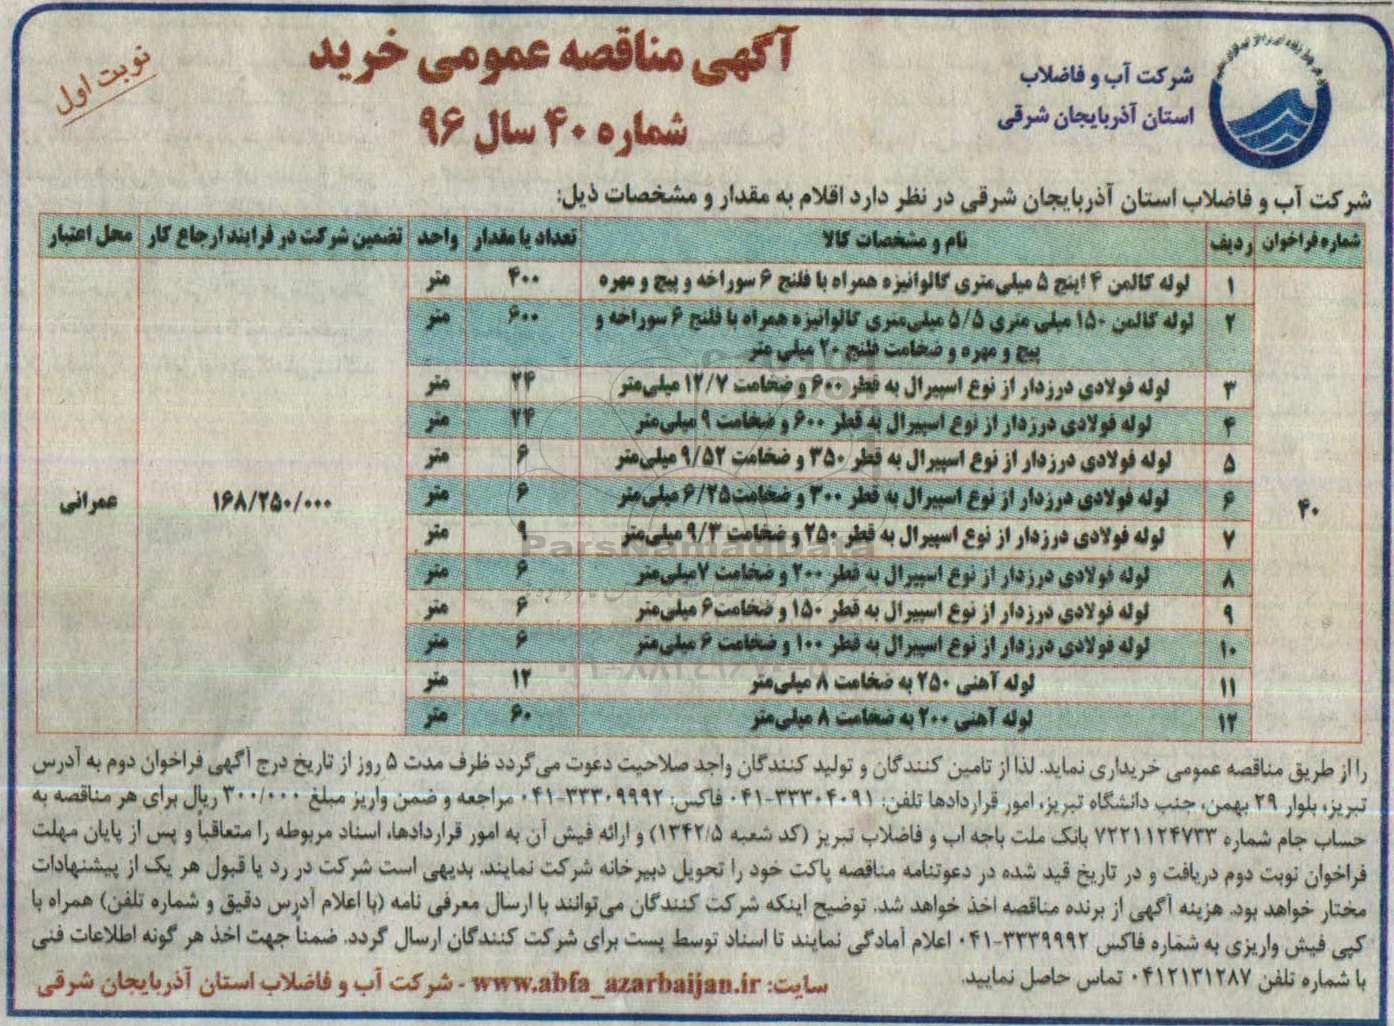 شرکت آب و فاضلاب
استان آذربایجان شرقی
آگهی مناقصه عمومی خرید
شماره ۴۰ سال ۹۶
نوبت اول
شرکت آب و فاضلاب استان آذربایجان شرقی در نظر دارد اقلام به مقدار و مشخصات ذیل:
شماره فراخوان ردیف نام و مشخصات کالا تعداد یا مقدار واحد تضمین شرکت در فرایند ارجاع کار محل اعتبار
۱ لوله کالمن ۴ اینچ ۵ میلی‌متری گالوانیزه همراه با فلنج ۶ سوراخه و پیچ و مهره ۴۰۰ متر
۲ لوله کالمن ۱۵۰ میلی متری ۵/۵ میلی‌متری گالوانیزه همراه با فلنج ۶ سوراخه و ۶۰۰ متر
پیچ و مهره و ضخامت فلنج ۲۰ میلی متر
۳ لوله فولادی درزدار از نوع اسپیرال به قطر ۶۰۰ و ضخامت ۱۲/۷ میلی‌متر ۲۴ متر
۴ لوله فولادی درزدار از نوع اسپیرال به قطر ۶۰۰ و ضخامت ۹ میلی‌متر ۲۴ متر
۵ لوله فولادی درزدار از نوع اسپیرال به قطر ۳۵۰ و ضخامت ۹/۵۲ میلی‌متر ۶ متر
۴۰ ۶ لوله فولادی درزدار از نوع اسپیرال به قطر ۳۰۰ و ضخامت ۶/۲۵ میلی‌متر ۶ متر ۱۶۸/۲۵۰/۰۰۰ عمرانی
۷ لوله فولادی درزدار از نوع اسپیرال به قطر ۲۵۰ و ضخامت ۹/۳ میلی‌متر ۹ متر
۸ لوله فولادی درزدار از نوع اسپیرال به قطر ۲۰۰ و ضخامت ۷ میلی‌متر ۶ متر
۹ لوله فولادی درزدار از نوع اسپیرال به قطر ۱۵۰ و ضخامت ۶ میلی‌متر ۶ متر
۱۰ لوله فولادی درزدار از نوع اسپیرال به قطر ۱۰۰ و ضخامت ۶ میلی‌متر ۶ متر
۱۱ لوله آهنی ۲۵۰ به ضخامت ۸ میلی‌متر ۱۲ متر
۱۲ لوله آهنی ۲۰۰ به ضخامت ۸ میلی‌متر ۶۰ متر
ParsNamadData
را از طریق مناقصه عمومی خریداری نماید. لذا از تامین کنندگان و تولید کنندگان واجد صلاحیت دعوت می‌گردد ظرف مدت ۵ روز از تاریخ درج آگهی فراخوان دوم به آدرس
تبریز، بلوار ۲۹ بهمن، جنب دانشگاه تبریز، امور قراردادها تلفن: ۳۳۳۰۴۰۹۱-۰۴۱ فاکس: ۳۳۳۰۹۹۹۲-۰۴۱ مراجعه و ضمن واریز مبلغ ۳۰۰/۰۰۰ ریال برای هر مناقصه به
حساب جام شماره ۷۲۲۱۱۲۴۷۳۳ بانک ملت باجه آب و فاضلاب تبریز (کد شعبه ۱۳۴۲/۵) و ارائه فیش آن به امور قراردادها، اسناد مربوطه را متعاقباً و پس از پایان مهلت
فراخوان نوبت دوم دریافت و در تاریخ قید شده در دعوتنامه مناقصه پاکت خود را تحویل دبیرخانه شرکت نمایند. بدیهی است شرکت در رد یا قبول هر یک از پیشنهادات
مختار خواهد بود. هزینه آگهی از برنده مناقصه اخذ خواهد شد. توضیح اینکه شرکت کنندگان می‌توانند با ارسال معرفی نامه (با اعلام آدرس دقیق و شماره تلفن) همراه با
کپی فیش واریزی به شماره فاکس ۳۳۳۹۹۹۲-۰۴۱ اعلام آمادگی نمایند تا اسناد توسط پست برای شرکت کنندگان ارسال گردد. ضمناً جهت اخذ هر گونه اطلاعات فنی
با شماره تلفن ۰۴۱۲۱۳۱۲۸۷ تماس حاصل نمایید.
سایت: www.abfa_azarbaijan.ir - شرکت آب و فاضلاب استان آذربایجان شرقی